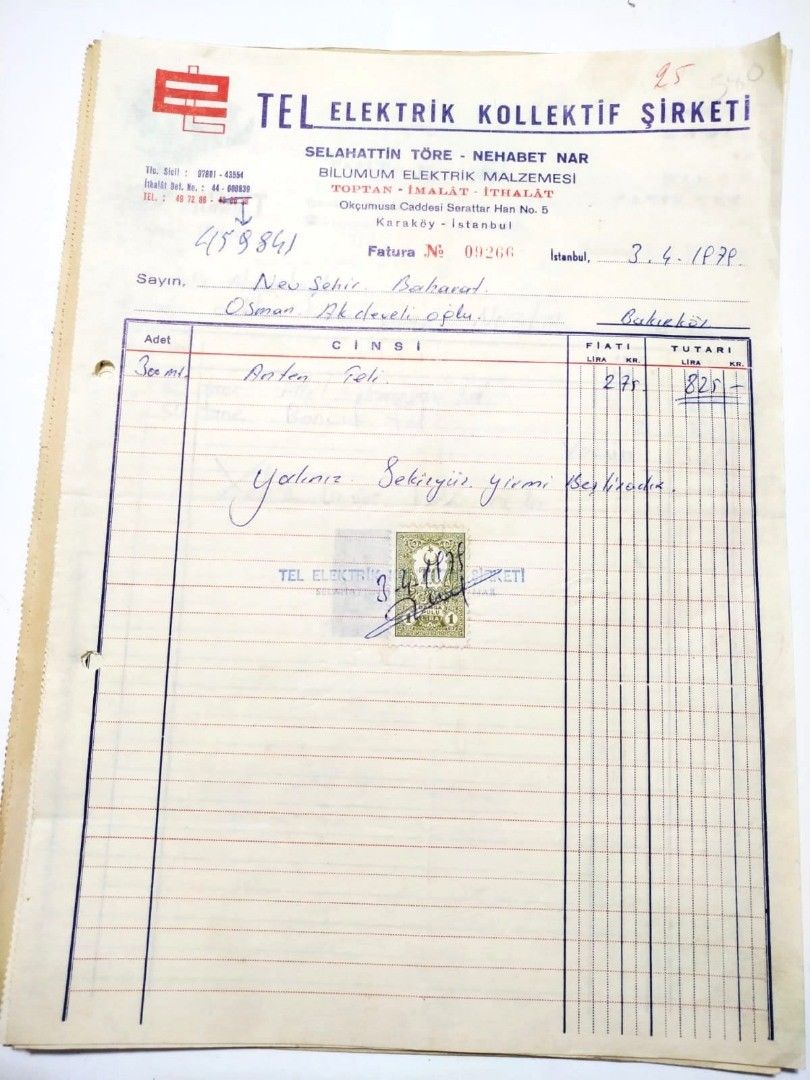 25
TEL ELEKTRİK KOLLEKTİF ŞİRKETİ
SELAHATTİN TÖRE - NEHABET NAR
BİLUMUM ELEKTRİK MALZEMESİ
TOPTAN - İMALÂT - İTHALÂT
Okçumusa Caddesi Serattar Han No. 5
Karaköy - İstanbul
Tic. Sicil : 97801 - 43554
İthalât Bel. No. : 44 - 000839
TEL. : 49 72 86 -
459841
Fatura № 09266
İstanbul, 3.4.1979.
Sayın, Nevşehir Baharat
Osman Akdevelioğlu. Bakırköy
Adet CİNSİ FİATI TUTARI
LİRA KR. LİRA KR.
300 mt. Anten Teli. 2 75. 825 -
Yalnız Sekizyüz yirmi Beşliradır.
TEL ELEKTRİK ŞİRKETİ
3.4.1979
1 1